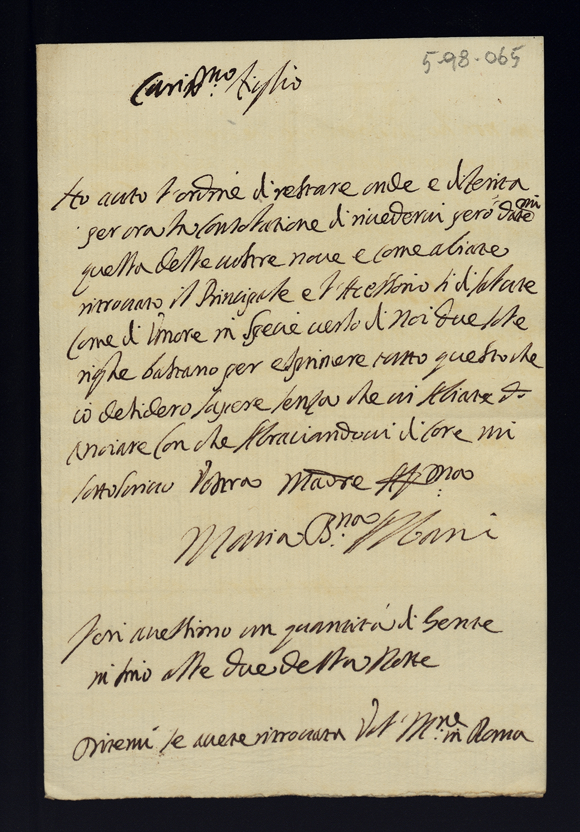 5-98-065
Cariss.mo figlio
Ho auto l'ordine di restare onde e diferita
per ora la consolatione di rivedervi però datemi
quessta delle vostre nove e come aliate
ritrovato il Principale e l'Acessorio si di salute
Come di Umore in specie verso di Noi due sole
righe bastano per esprimere tutto questo che
io desidero sapere senza che vi stiate
Con che Abraciandovi di core mi
sottoscrivo Vostra Madre Aff.ma
Maria B.na Mani
Jeri avessimo un quantità di Gente
in sino alle due della Notte
Ditemi se avete ritrovata Vos. M.ne in Roma